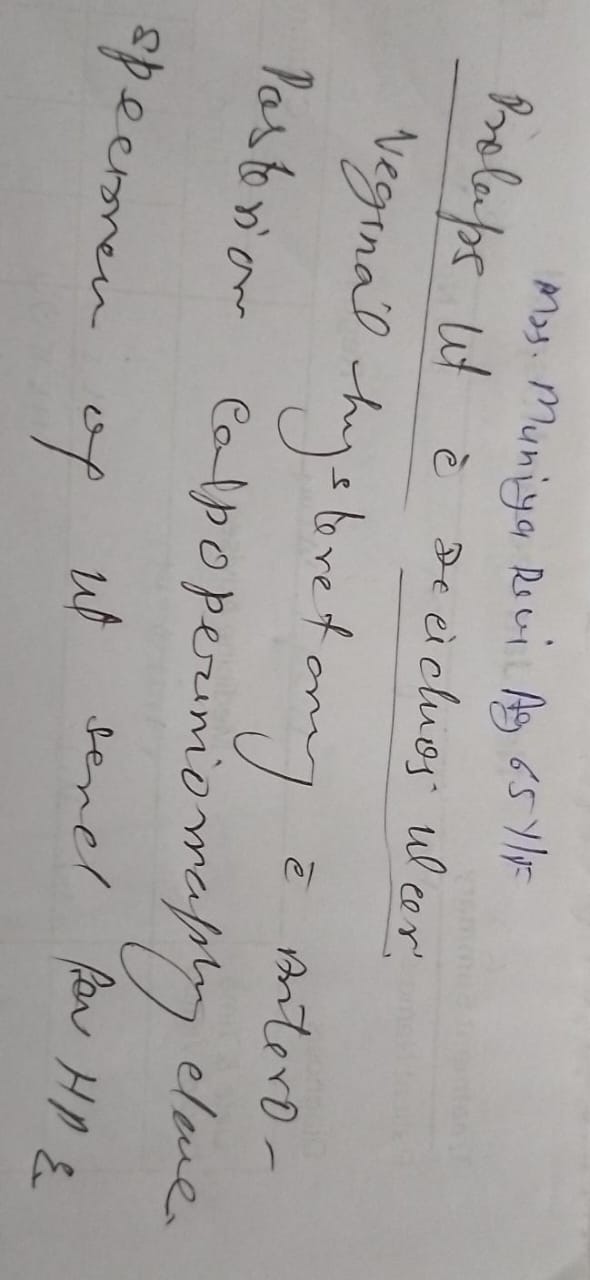 Mrs. Muniya Devi Ag 65 Y/F
Prolaps Ut c̄ Decichuos ulcer.
Veginal hysteretomy c̄ Antero-
Posterior Colpoperiniorraphy done.
specimen of Ut send for HPE